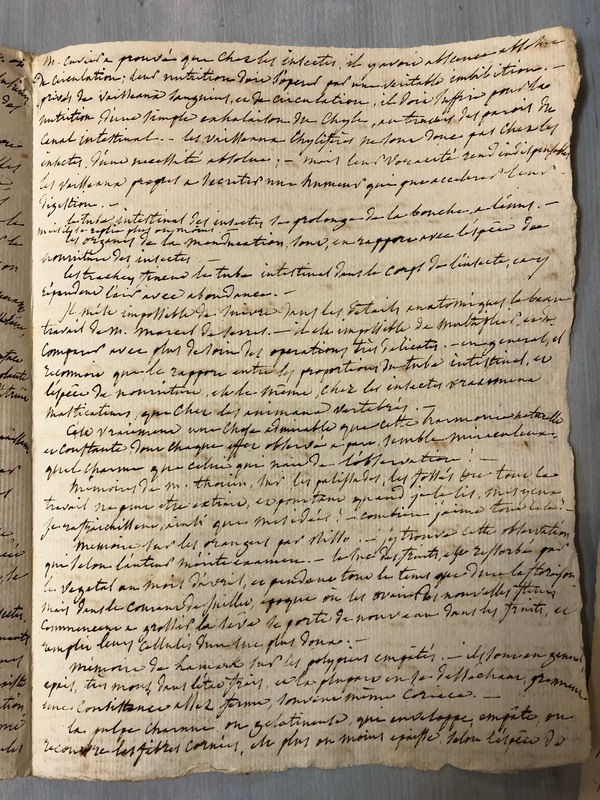 M. Cuvier a prouvé que chez les insectes, il y avoit absence absolue
de circulation; leur nutrition doit s'opérer par une veritable imbibition. —
privés de vaisseaux sanguins, et de circulation, il doit suffire pour la
nutrition d'une simple exhalaison de chyle, au travers des parois du
canal intestinal. — les vaisseaux chylifères ne sont donc pas chez les
insectes, d'une necessité absolue; — mais leur voracité rend indispensables
les vaisseaux propres a secreter une humeur qui peut accelerer leur
digestion. —
le tube intestinal des insectes se prolonge de la bouche a l'anus. —
mais il se replie plus ou moins. —
les organes de la manducation, sont, en rapport avec l'espèce de
nourriture des insectes —
les trachées, tiennent le tube intestinal dans le corps de l'insecte, et y
répandent l'air avec abondance. —
Il m'est impossible de suivre dans les details anatomiques le beau
travail de M. Marcel de Serres. — il est impossible de multiplier, et de
comparer avec plus de soin des operations très delicates. — en general, il
reconnoit que le rapport entre les proportions du tube intestinal, et
l'espèce de nourriture, est le même, chez les insectes vraiment
masticateurs, que chez les animaux vertebrés. —
C'est vraiment une chose admirable que cette harmonie naturelle
et constante dont chaque effet observé a part, semble miraculeux.
quel charme que celui qui nait de l'observation! —
Mémoires de M. Thouin, sur les palissades, les fossés &c tout le
travail ne peut etre extrait, et pourtant quand je le lis, mes yeux
se rafraichissent, ainsi que mes idées! — combien j'aime
Memoire sur les oranges par — j'y trouve cette observation
qui selon l'auteur mérite examen. — le suc des fruits, est resorbé par
le vegetal au mois d'avril, et pendant tout le tems que dure la floraison
mais dans le courant de juillet, époque ou les ovaires des nouvelles fleurs
commencent a grossir la seve se porte de nouveau dans les fruits, et
remplit leurs cellules d'un suc plus doux. —
Memoire de Lamarck sur les polypiers empâtés. — ils sont en general
epais, très mous, dans l'etat frais, et la plupart en se dessechant, prennent
une consistance assez ferme, souvent même coriace. —
la pulpe charnue ou gelatineuse, qui enveloppe, empâte, ou
recouvre les fibres cornées, est plus ou moins epaisse selon l'espèce de